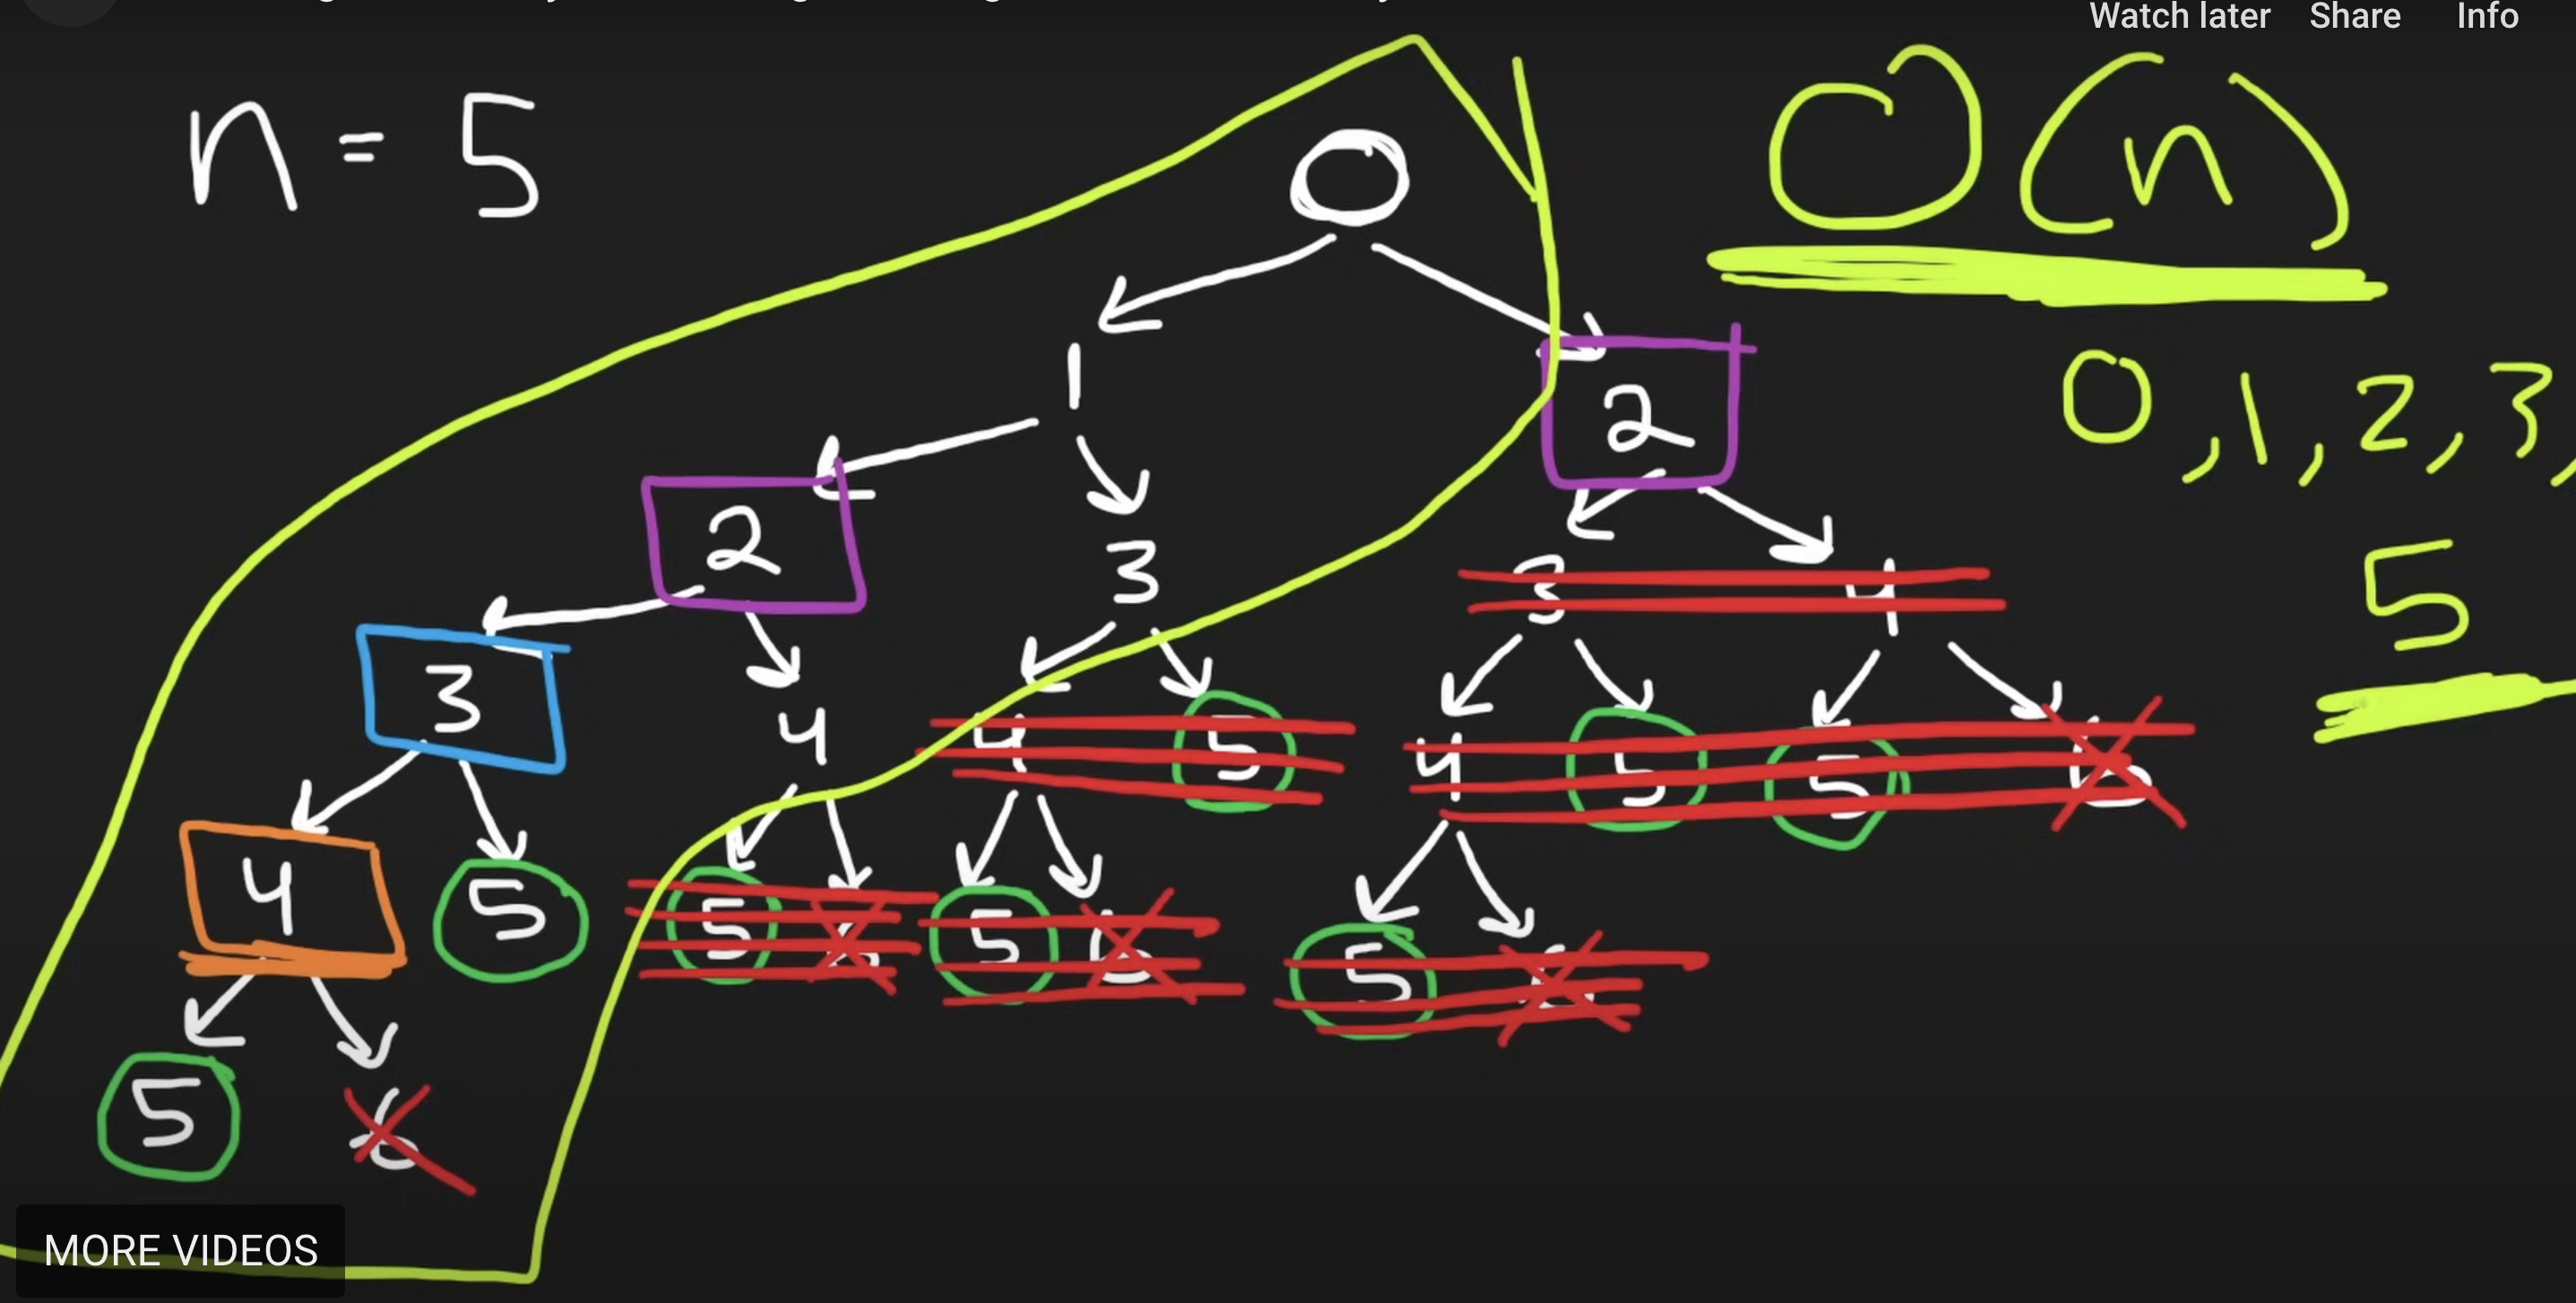 Watch later Share Info
n = 5
O(n)
0
0, 1, 2, 3,
1
2
2
3
5
3
4
3
4
4
5
4
5
5
6
4
5
5
6
5
6
5
6
5
6
MORE VIDEOS